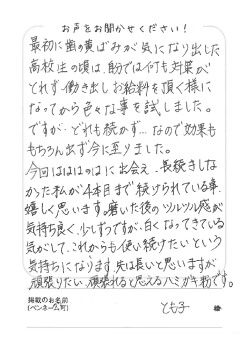 お声をお聞かせください!
最初に歯の黄ばみが気になり出した
高校生の頃は、自分では何も対策が
とれず、働き出しお給料を頂く様に
なってから色々な事を試しました。
ですが…どれも続かず…なので効果も
もちろん出ず今に至りました。
今回はははのはに出会え、長続きしな
かった私が4本目まで続けられている事、
嬉しく思います。磨いた後のツルツル感が
気持ち良く、少しずつですが、白くなってきている
気がして、これからも使い続けたいという
気持ちになります。先は長いと思いますが
頑張りたい、頑張れると思えるハミガキ粉です。
掲載のお名前
(ペンネーム可)
とも子 様